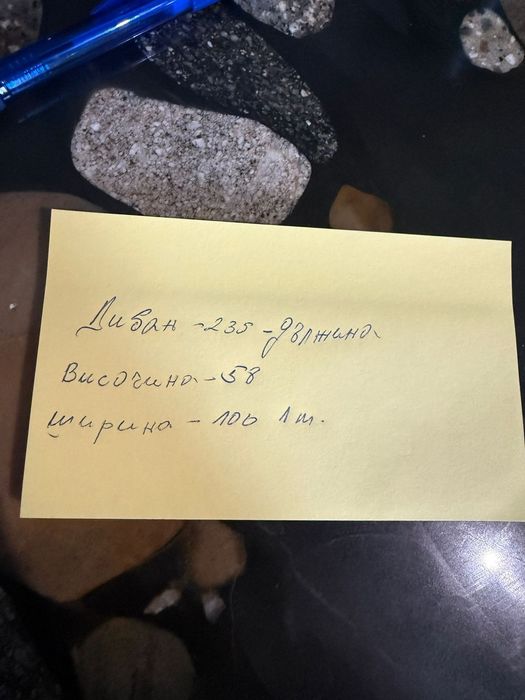 Диван - 235 - дължина
Височина - 58
ширина - 106 1 т.